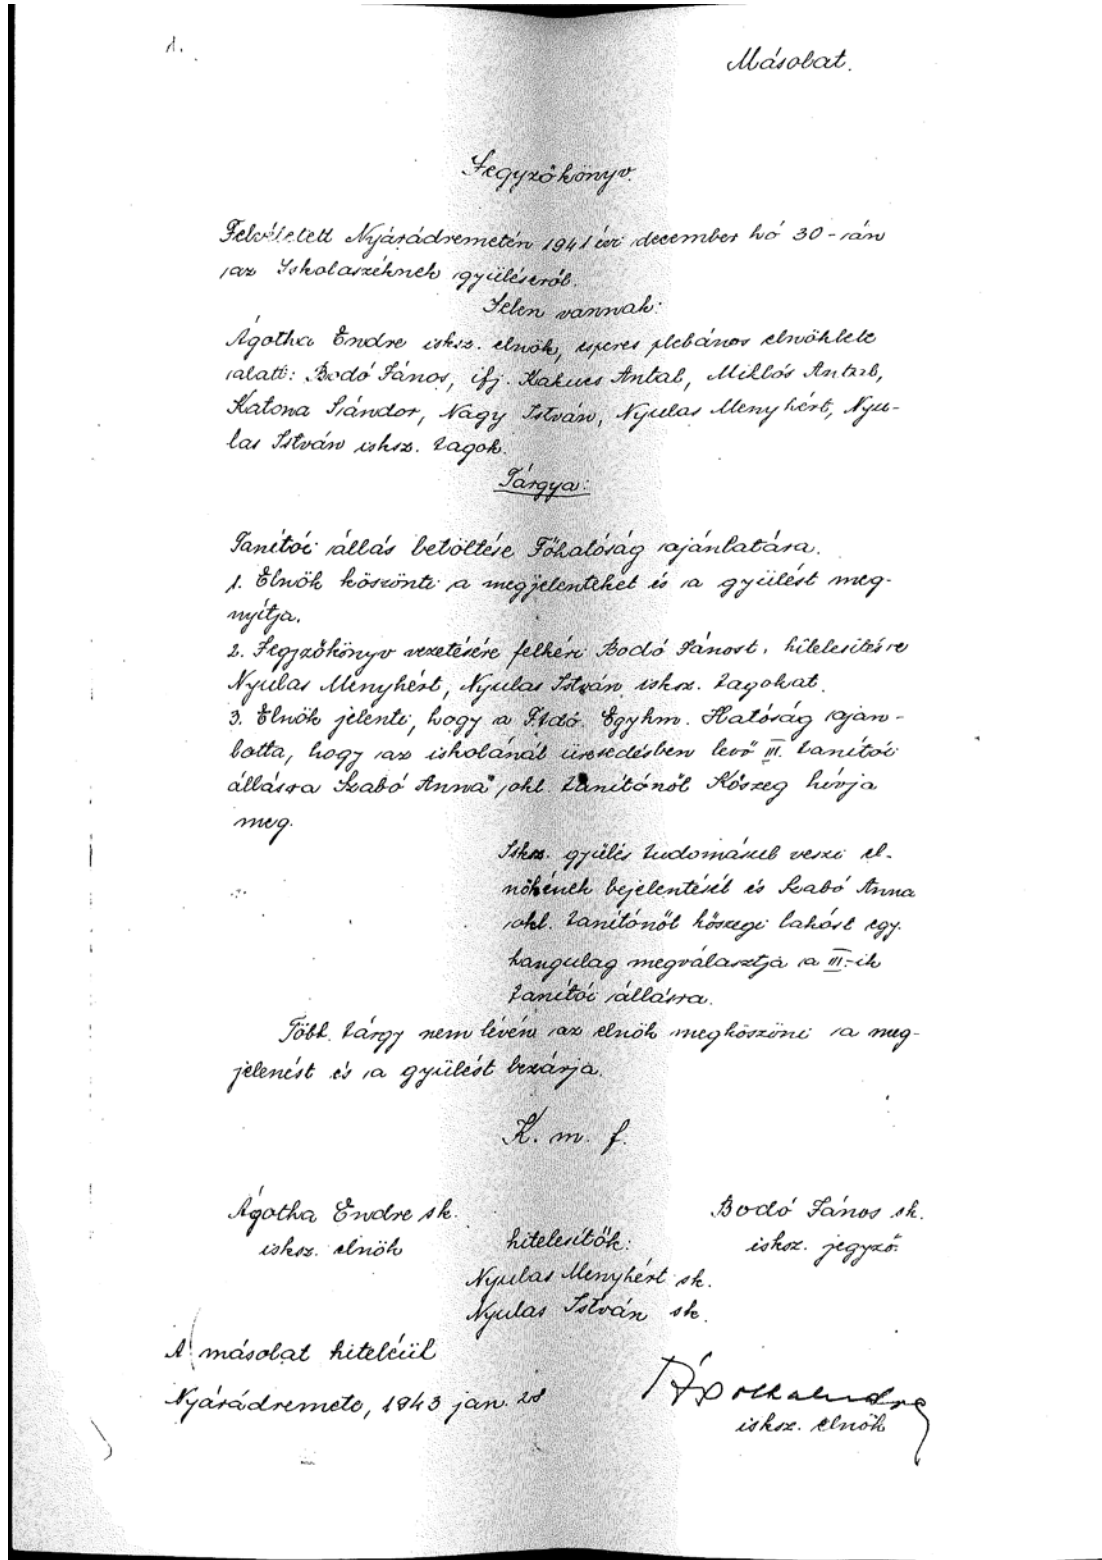 1.
Másolat.
Jegyzőkönyv.
Felvétetett Nyárádremetén 1941 évi december hó 30-án
az Iskolaszéknek gyüléséről.
Jelen vannak:
Ágotha Endre isksz. elnök, esperes plebános elnöklete
alatt: Bodó János, ifj. Kakucs Antal, Miklós Antal,
Katona Sándor, Nagy István, Nyulas Menyhért, Nyu-
las István isksz. tagok.
Tárgya:
Tanítói állás betöltése Főhatóság ajánlatára.
1. Elnök köszönti a megjelenteket és a gyülést meg-
nyítja.
2. Jegyzőkönyv vezetésére felkéri Bodó Jánost, hitelesitésre
Nyulas Menyhért, Nyulas István isksz. tagokat.
3. Elnök jelenti, hogy a Ftdő. Egyhm. Hatóság aján-
lotta, hogy az iskolánál üresedésben levő III. tanítói
állásra Szabó Anna okl. tanítónőt Kőszeg hívja
meg.
Isksz. gyülés tudomásul veszi el-
nökének bejelentését és Szabó Anna
okl. tanítónőt kőszegi lakóst egy-
hangulag megválasztja a III.-ik
tanítói állásra.
Több tárgy nem lévén az elnök megköszöni a meg-
jelenést és a gyülést bezárja.
K. m. f.
Ágotha Endre sk.
isksz. elnök
Bodó János sk.
isksz. jegyző.
hitelesítők:
Nyulas Menyhért sk.
Nyulas István sk.
A másolat hiteléül
Nyárádremete, 1943 jan. 28
isksz. elnök